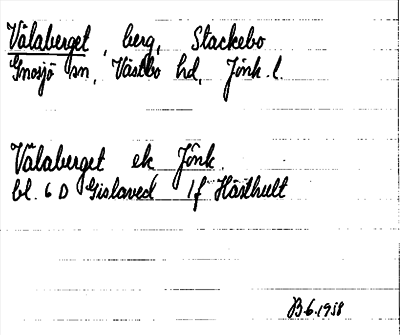 Vålaberget, berg, Stackebo
Gnosjö sn, Västbo hd, Jönk. l.
Vålaberget ek Jönk.
bl. 6 D Gislaved 1 f Hästhult
B6.1958